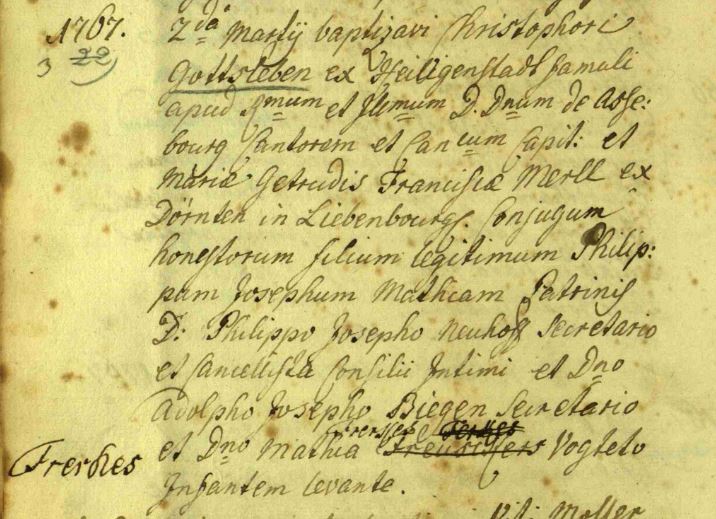 1767. 2da Martij baptizavi Christophori
3 22 Gottsleben ex Heiligenstadt famuli
apud Rmum et Illmum D. Dnum de Asse:
bourg Cantorem et Can cum Capit: et
Mariæ Getrudis Franciscæ Merll ex
Dörnten in Liebenbourg. Conjugum
honestorum filium legitimum Philip:
pum Josephum Mathiam Patrinis
D: Philippo Josepho Neuhoff Secretario
et Cancellista Consilii Intimi et Dno
Adolpho Josepho Biegen Secretario
Frerkes
et Dno Mathia Vogteto
Frerkes
Infantem levante.